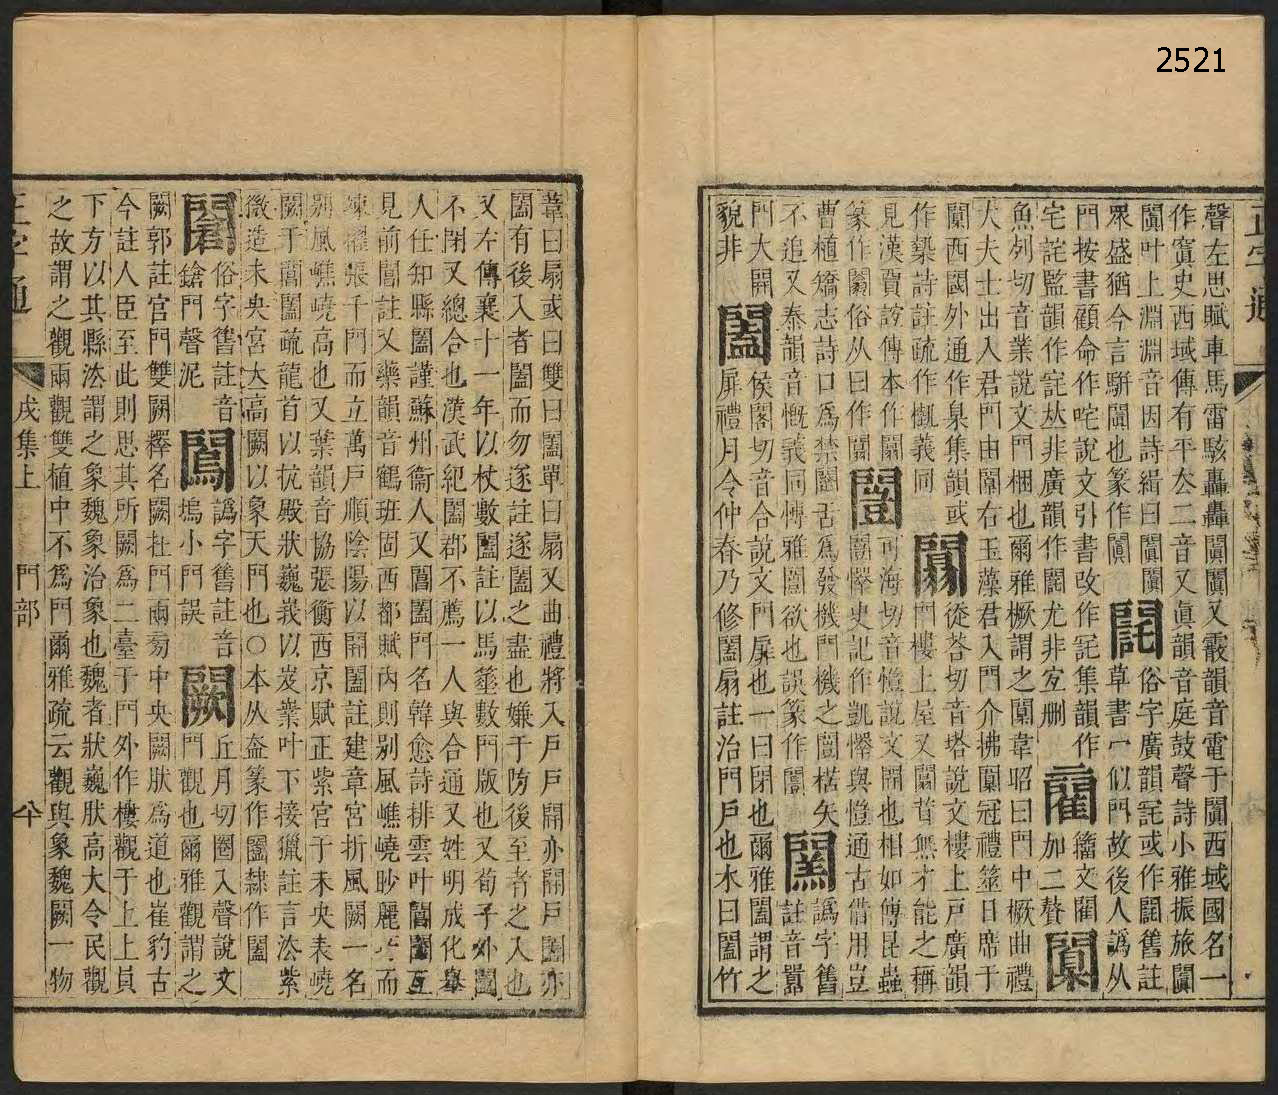 2521
正字通
聲左思賦車馬雷駭轟轟闐闐又霰韻音電于闐西域國名一
作寘史西域傳有平去二音又眞韻音庭鼓聲詩小雅振旅闐
闐叶上淵淵音因詩緝曰闐闐
衆盛猶今言騈闐也篆作闐 䦖 俗字廣韻䦖或作䦖舊註
草書一似門故後人譌从
門按書顧命作咤說文引書改作詫集韻作
宅詫監韻作宅𠀤非廣韻作䦖尤非宜删 籀文闉
加二贅 闑
魚列切音業說文門梱也爾雅橛謂之闑韋昭曰門中橛曲禮
大夫士出入君門由闑右玉藻君入門介拂闑冠禮筮日席于
闑西國外通作臬集韻或
作槷詩註疏作㰕義同 闒 從荅切音塔說文樓上戸廣韻
門樓上屋又闒茸無才能之稱
見漢賈誼傳本作闒
篆作闒俗从曰作闒 闓 可海切音愷說文開也相如傳昆蟲
闓懌史記作凱懌與愷通古借用豈
曹植矯志詩口爲禁闥舌爲發機門機之闓楛矢
不追又泰韻音慨義同愽雅闓欲也誤篆作闓 䦧 譌字舊
註音翯
門大開
貌非 闔 侯閤切音合說文門扉也一曰閉也爾雅闔謂之
扉禮月令仲春乃修闔扇註治門戸也木曰闔竹
葦曰扇或曰雙曰闔單曰扇又曲禮將入戸戸開亦開戸闔亦
闔有後入者闔而勿遂註遂闔之盡也嫌于防後至者之入也
又左傳襄十一年以杖數闔註以馬箠數門版也又荀子外闔
不閉又總合也漢武紀闔郡不薦一人與合通又姓明成化舉
人任知縣闔謹蘇州衞人又閶闔門名韓愈詩排雲叶閶闔互
見前閶註又藥韻音鶴班固西都賦內則别風嶕嶢眇麗巧而
竦擢張千門而立萬戸順陰陽以開闔註建章宮折風闕一名
别風嶕嶢高也又葉韻音協張衡西京賦正紫宮于未央表嶢
闕于閶闔疏龍首以抗殿狀巍峩以岌嶪叶下接獵註言法紫
微造未央宮大高闕以象天門也○本从盍篆作闔隸作闔
䦥 俗字舊註音
鎗門聲泥 䦡 譌字舊註音
塢小門誤 闕 丘月切圈入聲說文
門觀也爾雅觀謂之
闕郭註宮門雙闕釋名闕在門兩旁中央闕肰爲道也崔豹古
今註人臣至此則思其所闕爲二臺于門外作樓觀于上上員
下方以其縣法謂之象魏象治象也魏者狀巍肰高大令民觀
之故謂之觀兩觀雙植中不爲門爾雅疏云觀與象魏闕一物
正字通 戌集上 門部 八十